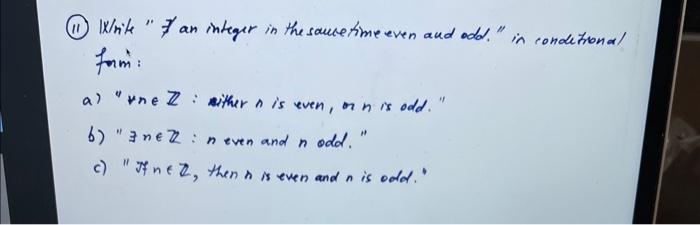 (11) Write "∃ an integer in the same time even and odd." in conditional
form:
a) "∀n∈ℤ : either n is even, or n is odd."
b) "∃n∈ℤ : n even and n odd."
c) "If n∈ℤ, then n is even and n is odd."